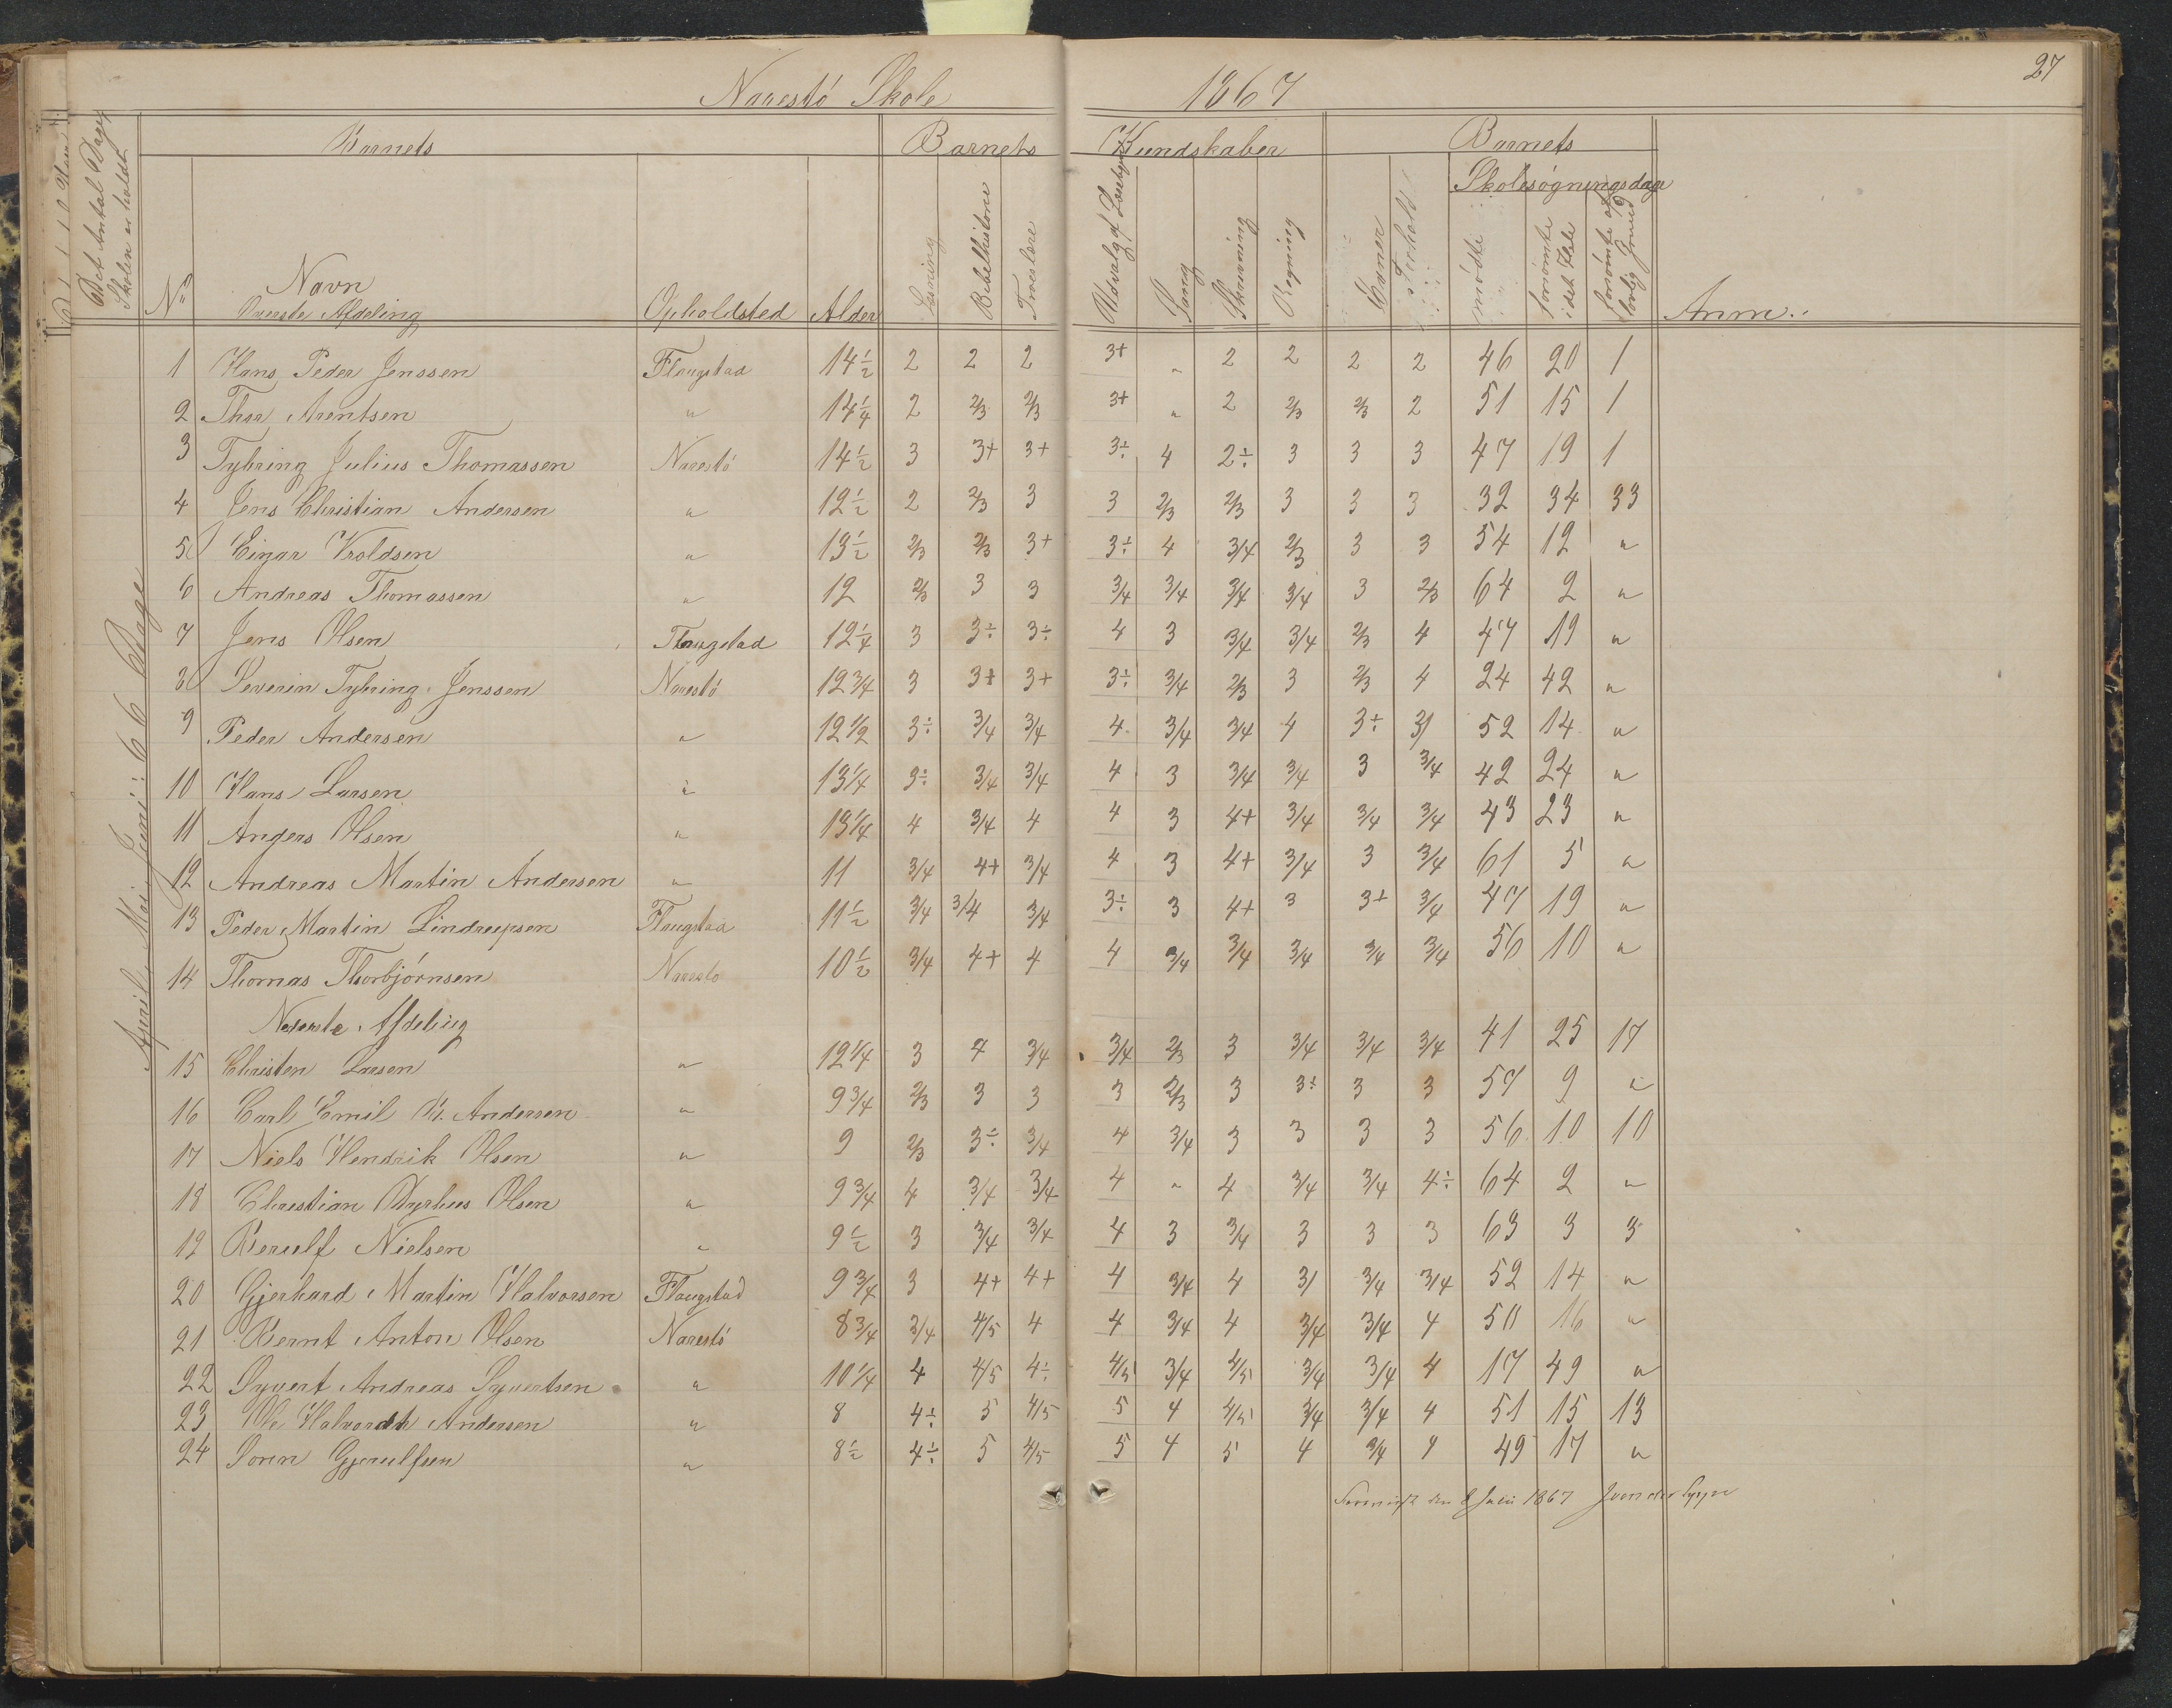 27
Narestö Skole 1867
Barnets Barnets Kundskaber Barnets
Skolesøgningsdage
Det Antal Dage Skolen er holdt
No Navn Opholdsted Alder Læsning Bibelhistorie Troeslære Udvalg af Læsebogen Sang Skrivning Regning Evner Forhold mödte forsömte i det Hele forsömte af lovlig Grund Anm.
Överste Afdeling
April, Mai, Juni: 66 Dage
1 Hans Peder Jenssen Flangstad 14 1/2 2 2 2 3+ " 2 2 2 2 46 20 1
2 Thor Arentsen " 14 1/4 2 2/3 2/3 3+ " 2 2/3 2/3 2 51 15 1
3 Tybring Julius Thomassen Narestö 14 1/2 3 3+ 3+ 3÷ 4 2÷ 3 3 3 47 19 1
4 Jens Christian Andersen " 12 1/2 2 2/3 3 3 2/3 2/3 3 3 3 32 34 33
5 Einar Vroldsen " 13 1/2 2/3 2/3 3+ 3÷ 4 3/4 2/3 3 3 54 12 "
6 Andreas Thomassen " 12 2/3 3 3 3/4 3/4 3/4 3/4 3 2/3 64 2 "
7 Jens Olsen Flangstad 12 1/4 3 3÷ 3÷ 4 3 3/4 3/4 2/3 4 47 19 "
8 Severin Tybring Jenssen Narestö 12 3/4 3 3+ 3+ 3÷ 3/4 2/3 3 2/3 4 24 42 "
9 Peder Andersen " 12 1/2 3÷ 3/4 3/4 4 3/4 3/4 4 3÷ 3/ 52 14 "
10 Hans Larsen " 13 1/4 3÷ 3/4 3/4 4 3 3/4 3/4 3 3/4 42 24 "
11 Anders Olsen " 13 1/4 4 3/4 4 4 3 4+ 3/4 3/4 3/4 43 23 "
12 Andreas Martin Andersen " 11 3/4 4+ 3/4 4 3 4+ 3/4 3 3/4 61 5 "
13 Peder Martin Lindrupsen Flangstad 11 1/2 3/4 3/4 3/4 3÷ 3 4+ 3 3+ 3/4 47 19 "
14 Thomas Thorbjörnsen Narestö 10 1/2 3/4 4+ 4 4 3/4 3/4 3/4 3/4 3/4 56 10 "
Nederste Afdeling
15 Christen Larsen " 12 1/4 3 4 3/4 3/4 2/3 3 3/4 3/4 3/4 41 25 17
16 Carl Emil Andersen " 9 3/4 2/3 3 3 3 2/3 3 3÷ 3 3 57 9 "
17 Niels Hendrik Olsen " 9 2/3 3÷ 3/4 4 3/4 3 3 3 3 56 10 10
18 Christian Dyrhus Olsen " 9 3/4 4 3/4 3/4 4 " 4 3/4 3/4 4÷ 64 2 "
19 Berulf Nielsen " 9 1/2 3 3/4 3/4 4 3 3/4 3 3 3 63 3 3
20 Gjerhard Martin Halvorsen Flangstad 9 3/4 3 4+ 4+ 4 3/4 4 3/ 3/4 3/4 52 14 "
21 Bernt Anton Olsen Narestö 8 3/4 3/4 4/5 4 4 3/4 4 3/4 3/4 4 50 16 "
22 Syvert Andreas Syvertsen " 10 1/4 4 4/5 4÷ 4/5 3/4 4/5 3/4 3/4 4 17 49 "
23 Ole Andersen " 8 4÷ 5 4/5 5 4 4/5 3/4 3/4 4 51 15 13
24 Sören Gjerulfsen " 8 1/2 4÷ 5 4/5 5 4 5 4 3/4 4 49 17 "
den 8 Juli 1867